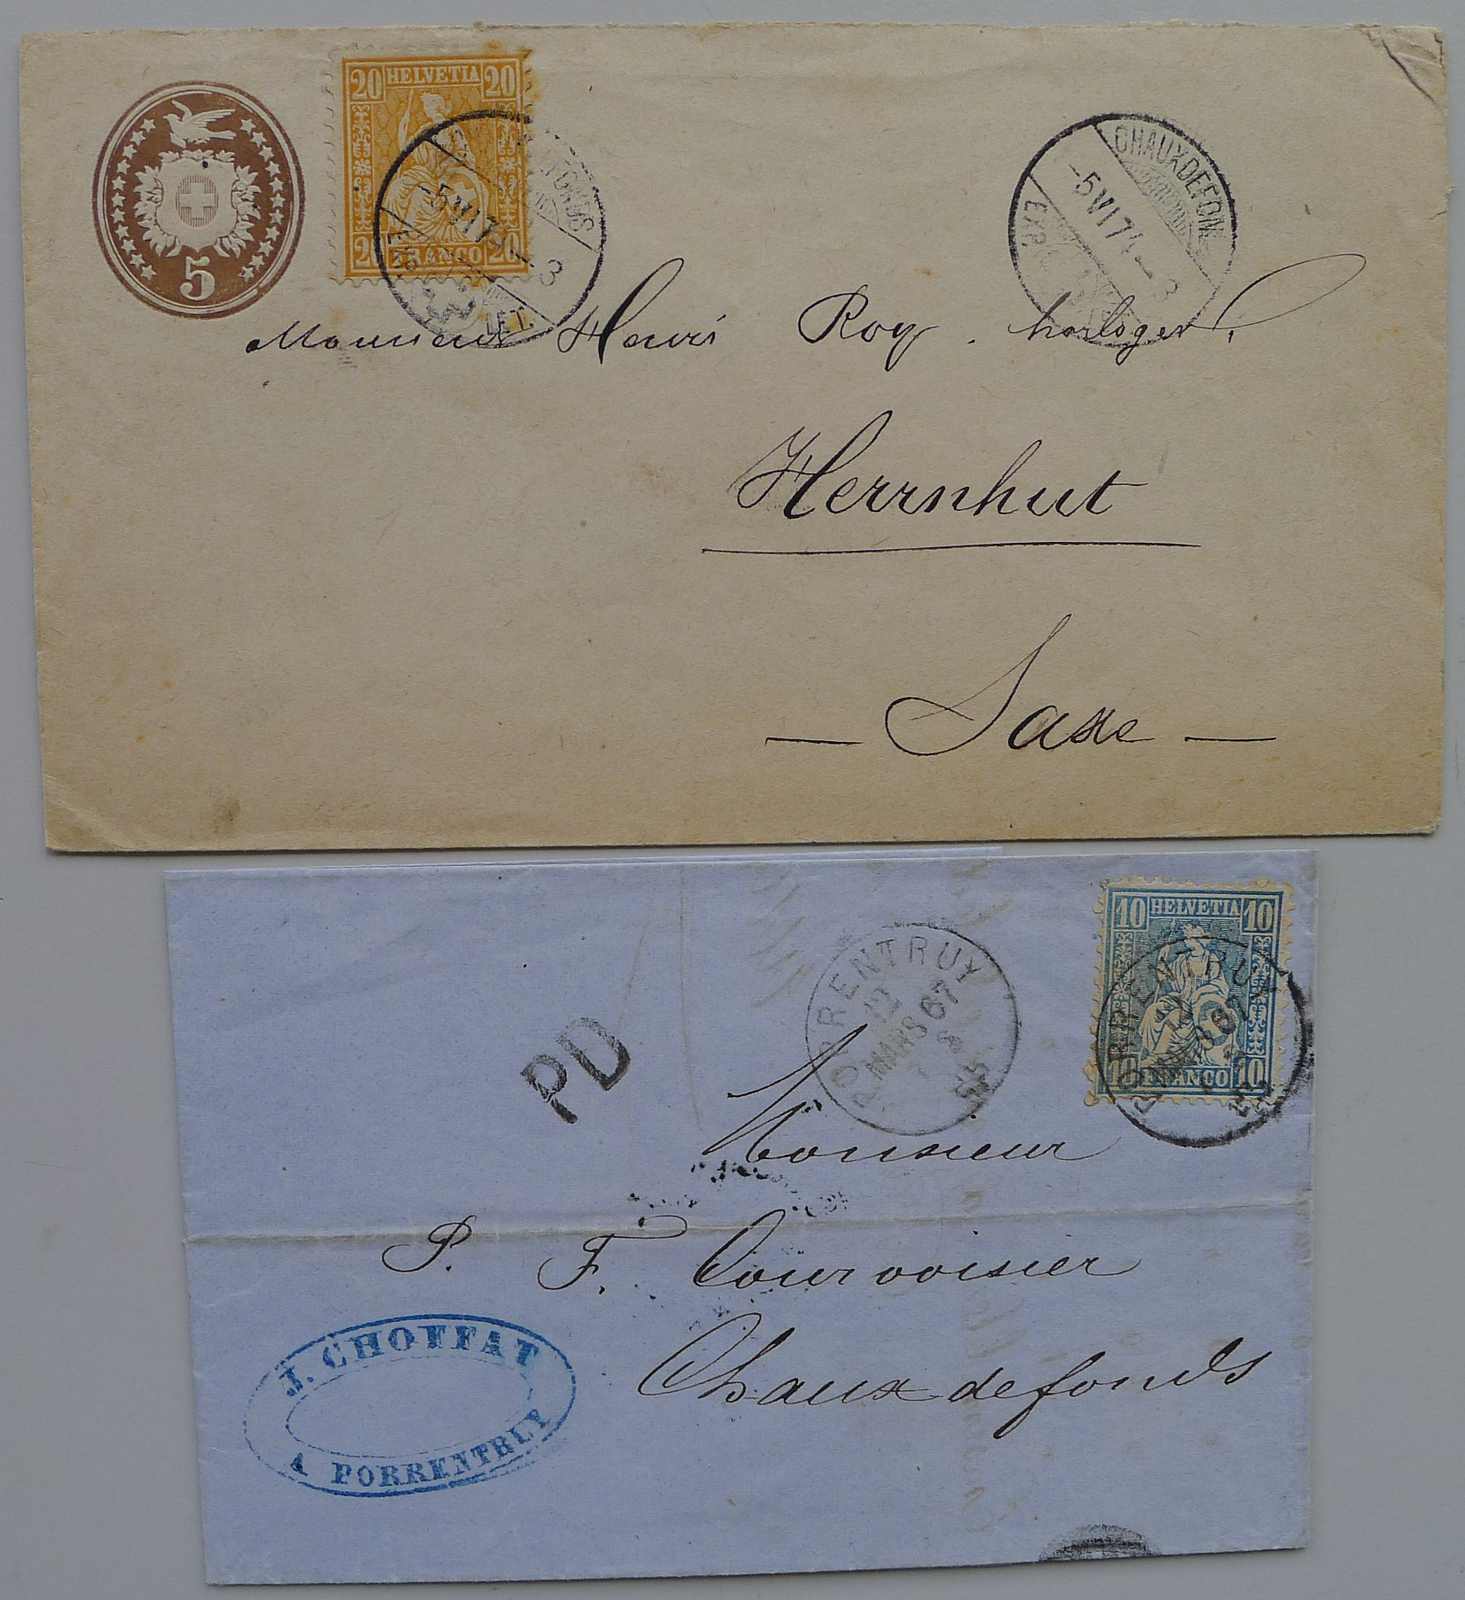 20 HELVETIA 20
20 FRANCO 20
5
-5 VI 74-3
EXP. LET.
CHAUXDEFONDS
-5 VI 74-3
EXP.
Monsieur Henri Roy. horloger
Herrnhut
— Saxe —
10 HELVETIA 10
10 FRANCO 10
PORRENTRUY
12
MARS 67
PORRENTRUY
67
PD
Monsieur
P. F. Courvoisier
Chaux de fonds
J. CHOFFAT
A PORRENTRUY